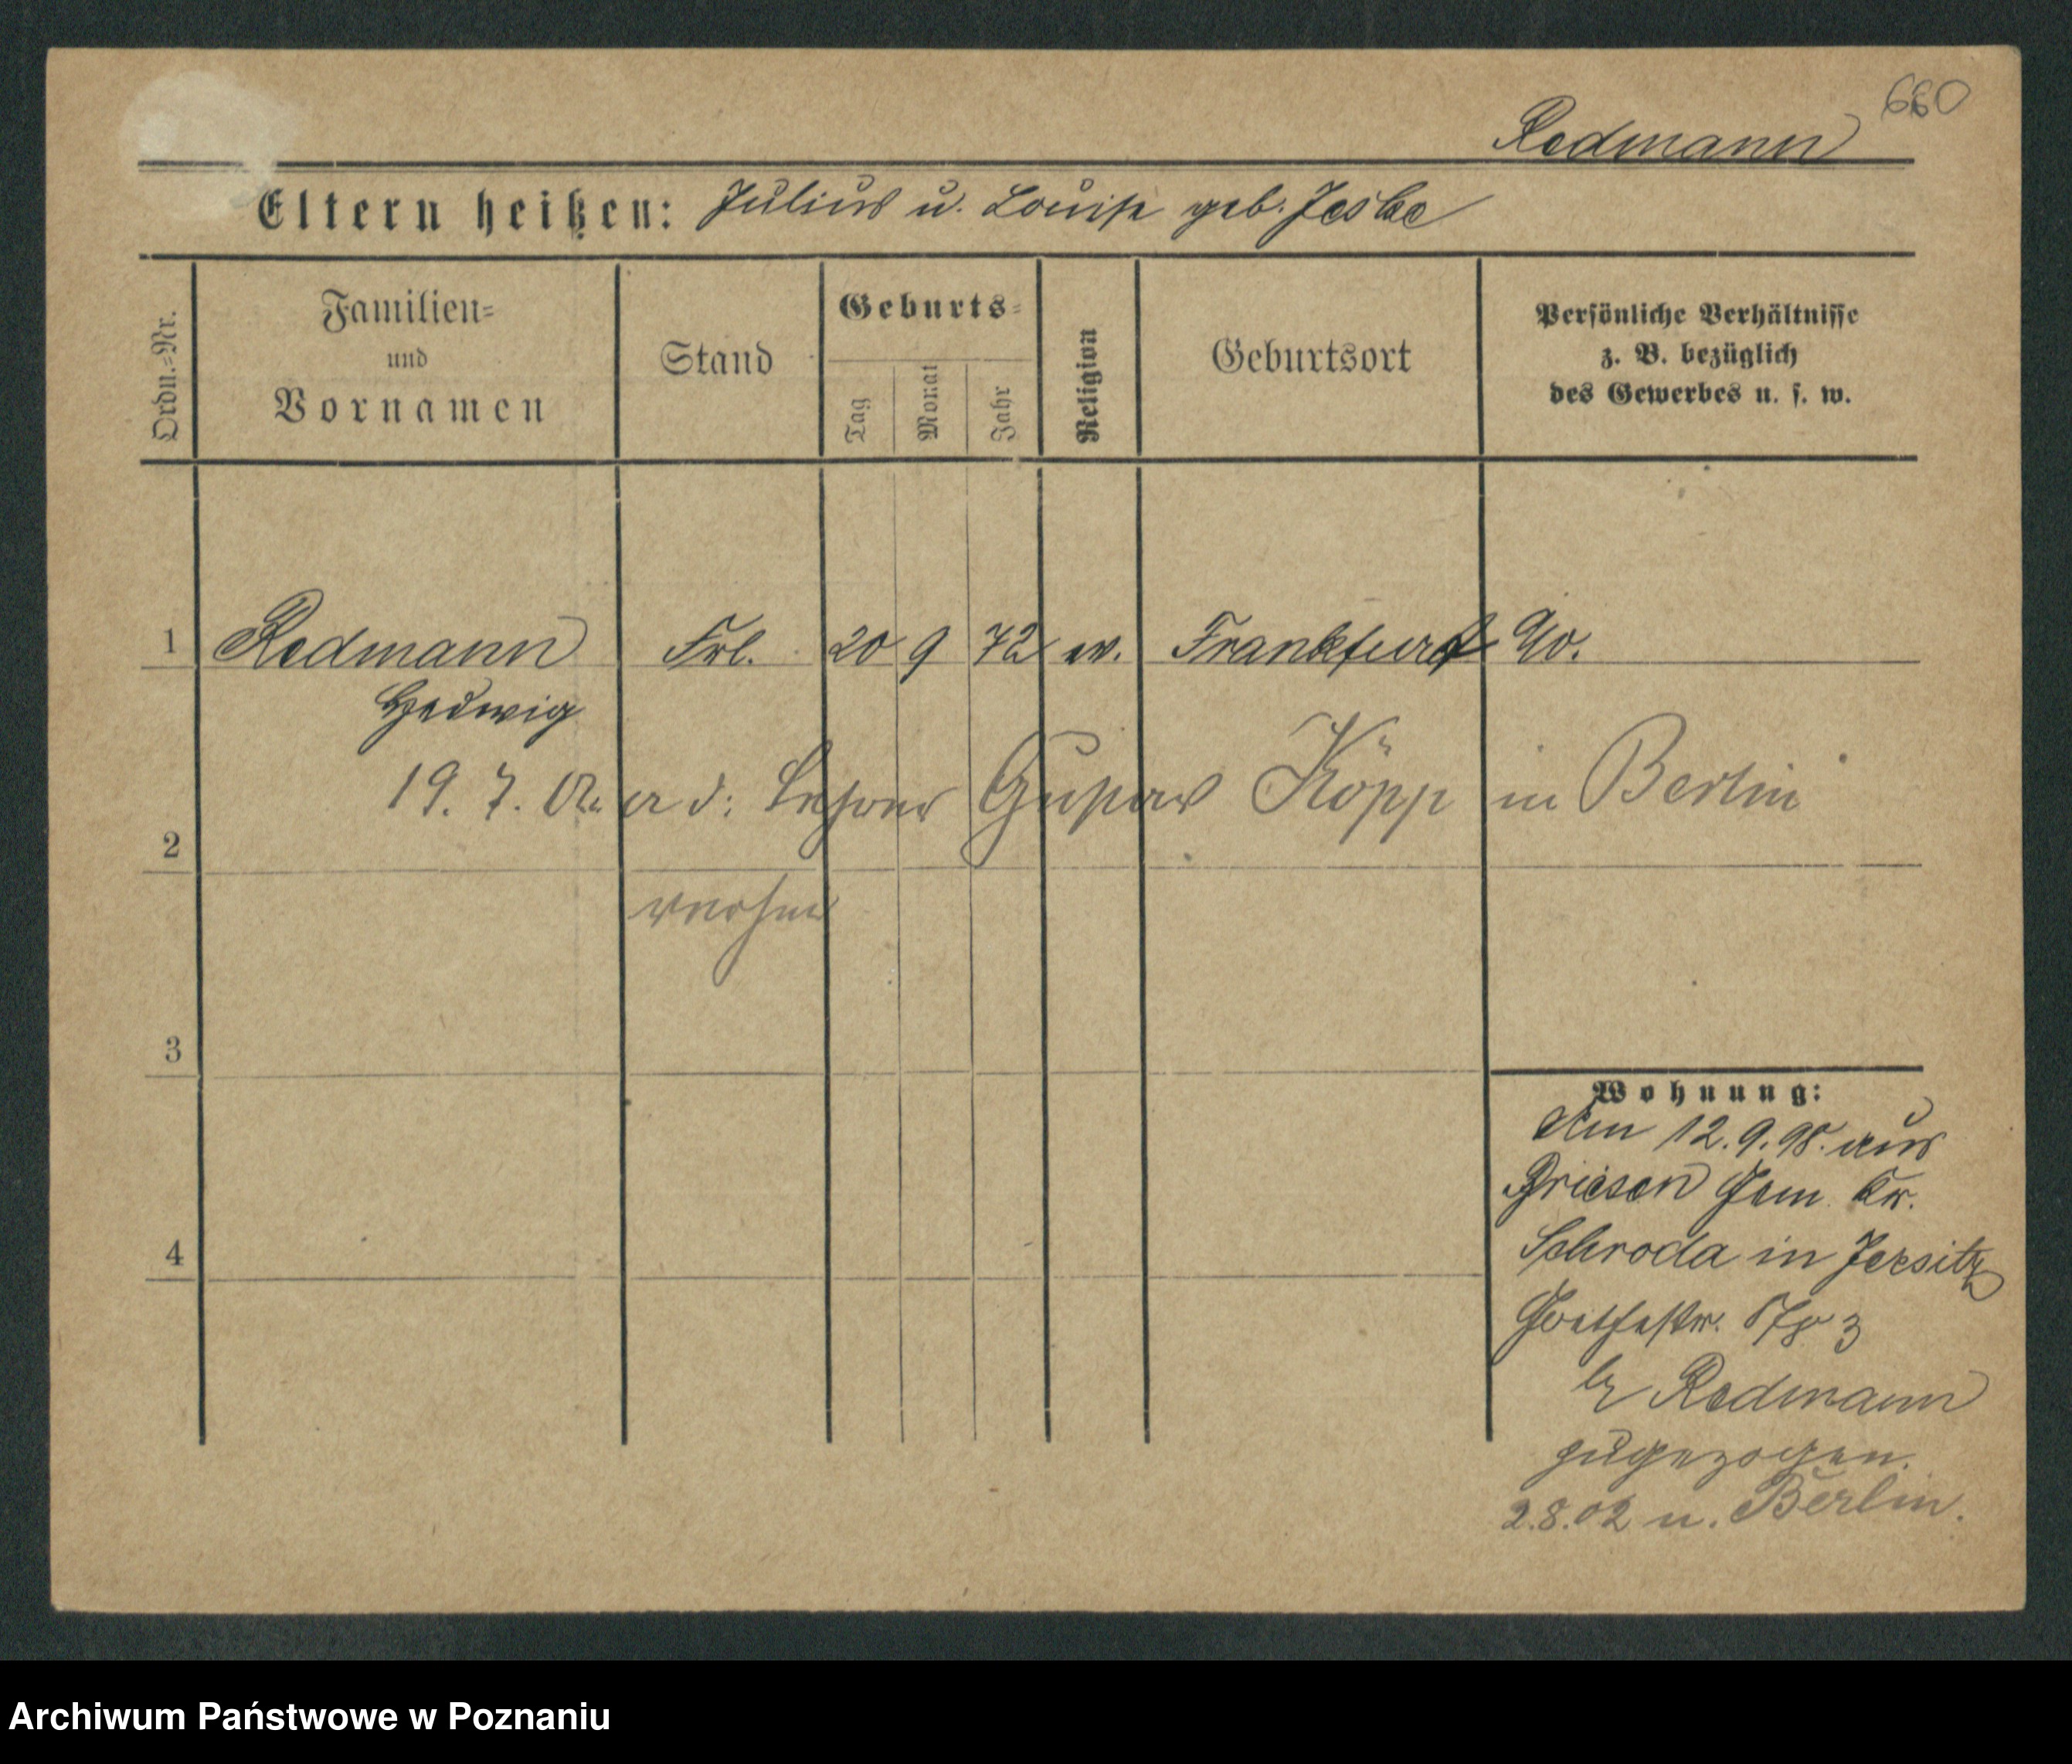 660
Redmann
Eltern heißen: Julius u. Louise geb. Jeske
Ordn.=Nr.
Familien=
und
Vornamen
Stand
Geburts=
Tag
Monat
Jahr
Religion
Geburtsort
Persönliche Verhältnisse
z. B. bezüglich
des Gewerbes u. s. w.
1 Redmann Frl. 20 9 72 ev. Frankfurt a/O.
Hedwig
19. 7. 02 d: Lehrer Gustav Köpp in Berlin
2
3
4
Wohnung:
Am 12.9.98. aus
Briesen Gem. Kr.
Schroda in Jersitz
Goethestr. 3
bei Redmann
zugezogen.
2.8.02 n. Berlin.
Archiwum Państwowe w Poznaniu